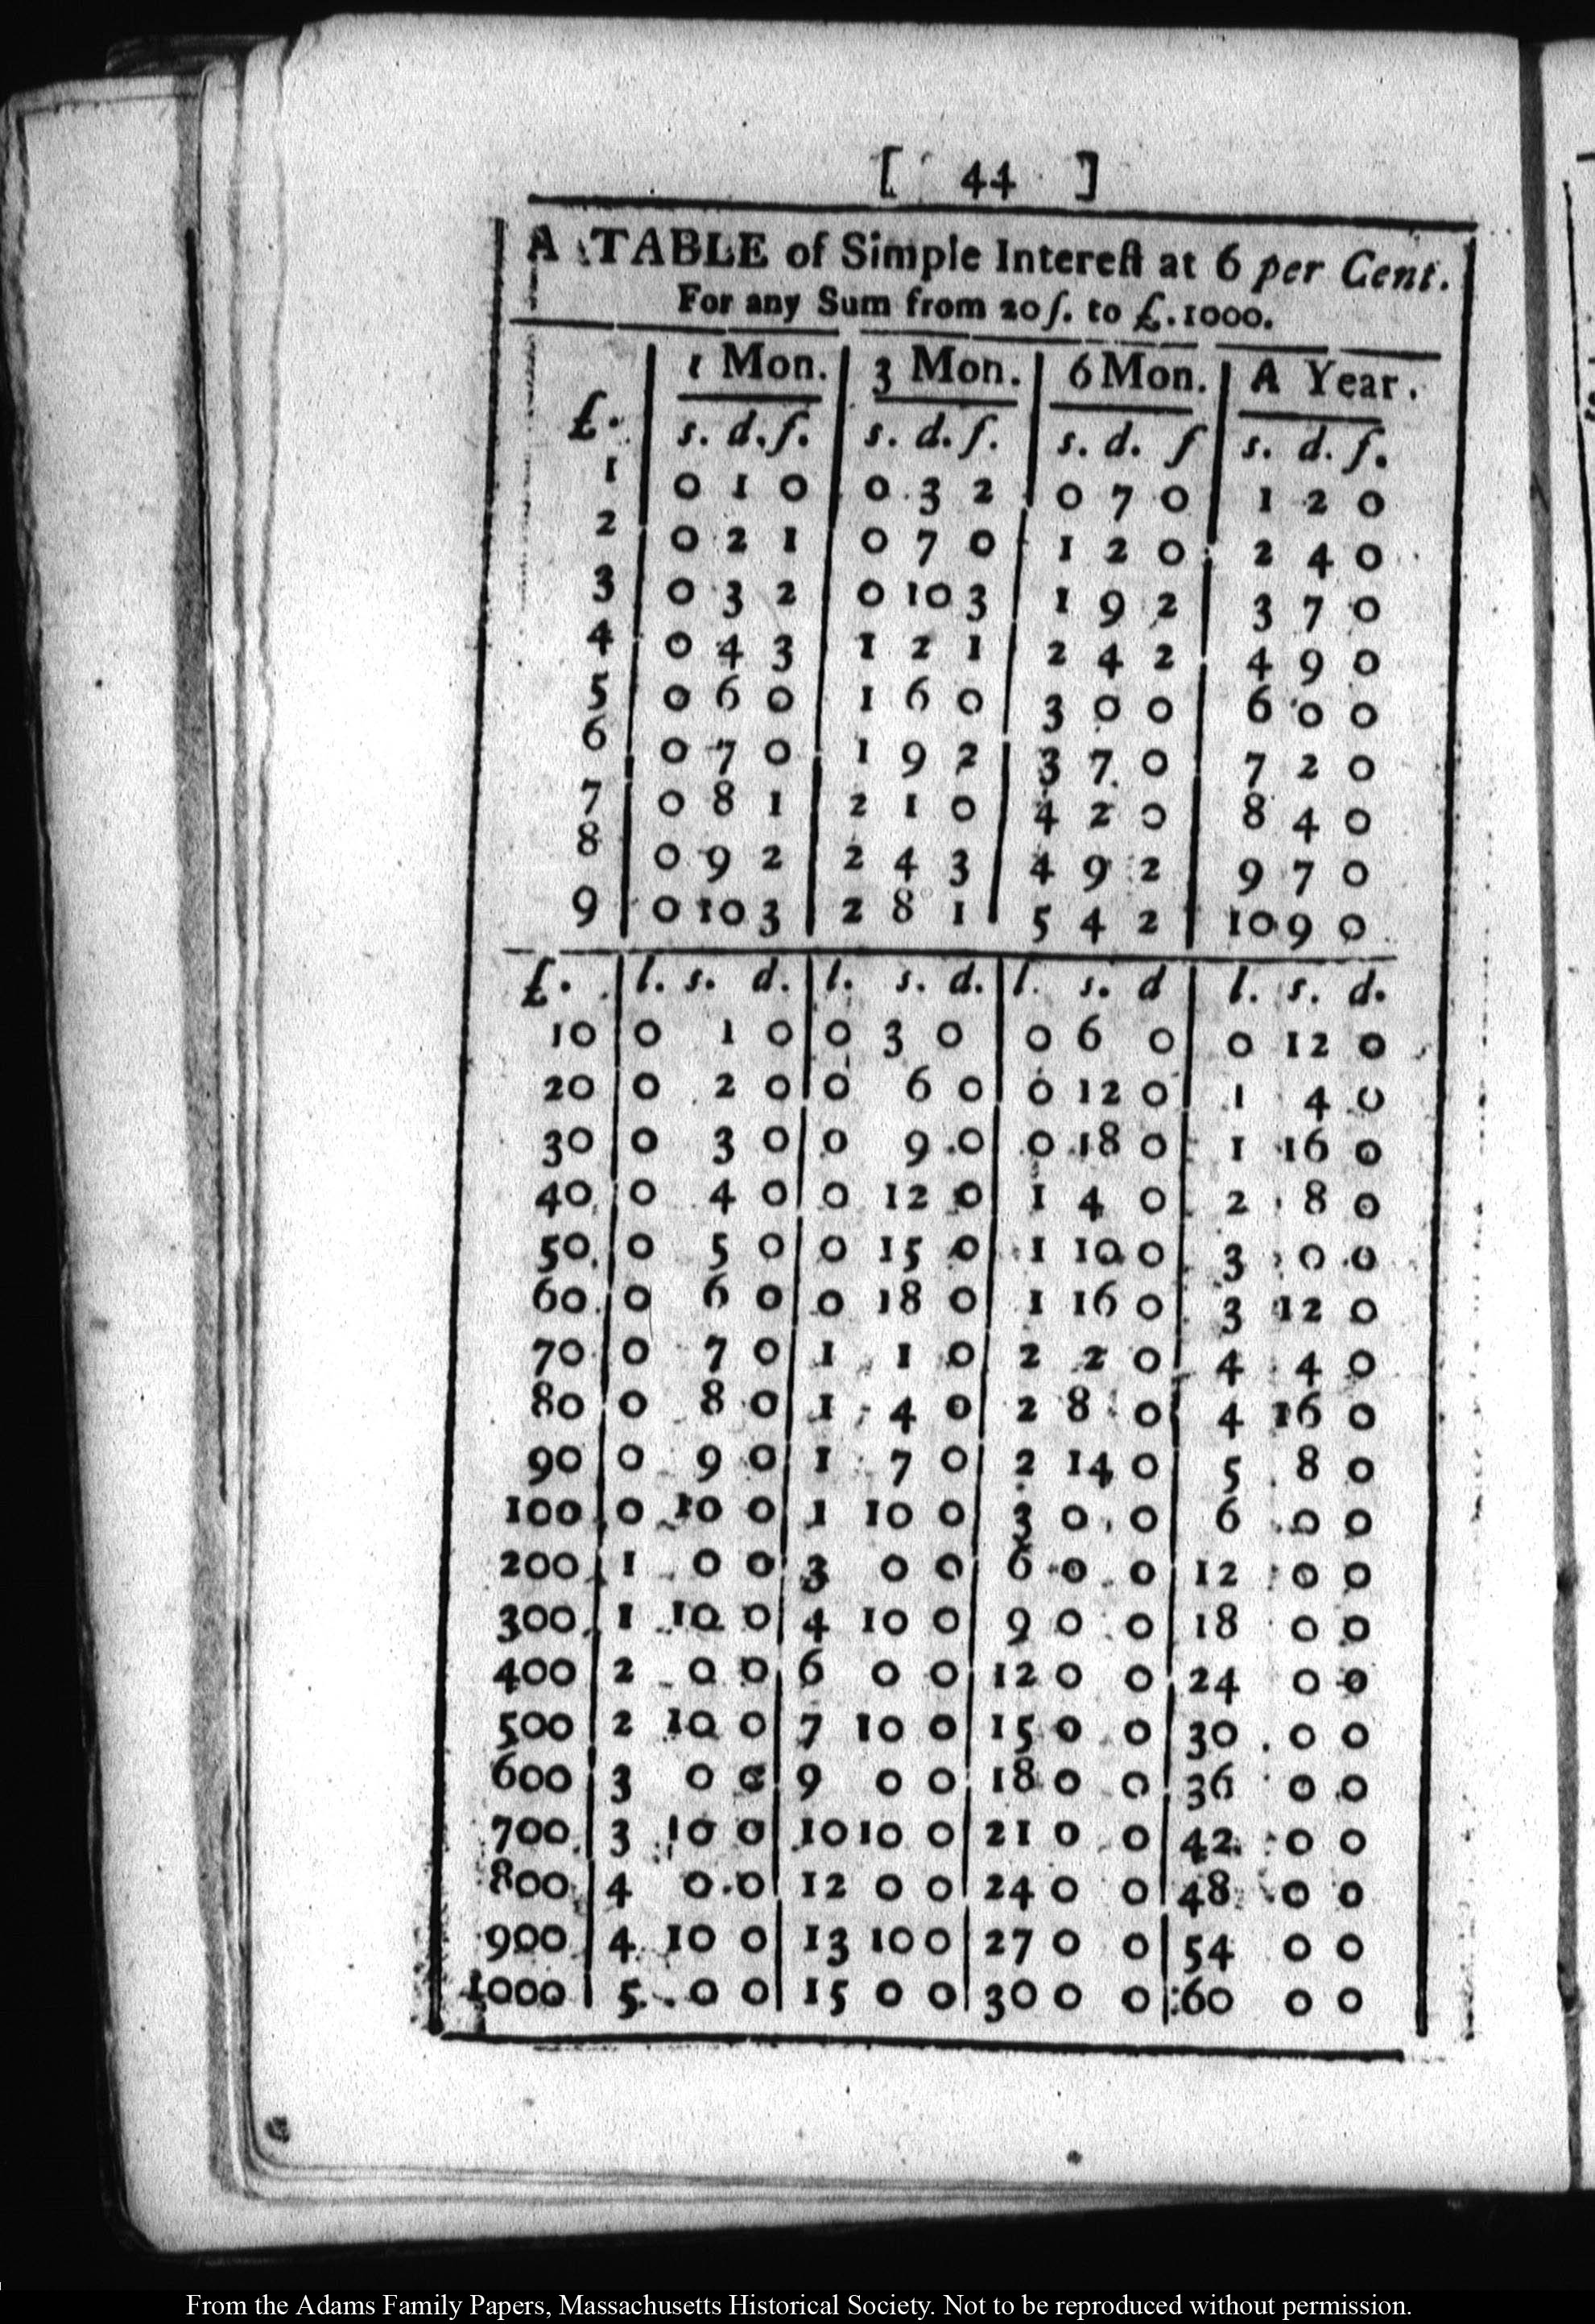 [ 44 ]
A TABLE of Simple Intereſt at 6 per Cent.
For any Sum from 20ſ. to £.1000.
1 Mon. 3 Mon. 6 Mon. A Year.
£. s. d. f. s. d. f. s. d. f s. d. f.
1 0 1 0 0 3 2 0 7 0 1 2 0
2 0 2 1 0 7 0 1 2 0 2 4 0
3 0 3 2 0 10 3 1 9 2 3 7 0
4 0 4 3 1 2 1 2 4 2 4 9 0
5 0 6 0 1 6 0 3 0 0 6 0 0
6 0 7 0 1 9 2 3 7 0 7 2 0
7 0 8 1 2 1 0 4 2 0 8 4 0
8 0 9 2 2 4 3 4 9 2 9 7 0
9 0 10 3 2 8 1 5 4 2 10 9 0
£. l. s. d. l. s. d. l. s. d l. s. d.
10 0 1 0 0 3 0 0 6 0 0 12 0
20 0 2 0 0 6 0 0 12 0 1 4 0
30 0 3 0 0 9 0 0 18 0 1 16 0
40 0 4 0 0 12 0 1 4 0 2 8 0
50 0 5 0 0 15 0 1 10 0 3 0 0
60 0 6 0 0 18 0 1 16 0 3 12 0
70 0 7 0 1 1 0 2 2 0 4 4 0
80 0 8 0 1 4 0 2 8 0 4 16 0
90 0 9 0 1 7 0 2 14 0 5 8 0
100 0 10 0 1 10 0 3 0 0 6 0 0
200 1 0 0 3 0 0 6 0 0 12 0 0
300 1 10 0 4 10 0 9 0 0 18 0 0
400 2 0 0 6 0 0 12 0 0 24 0 0
500 2 10 0 7 10 0 15 0 0 30 0 0
600 3 0 0 9 0 0 18 0 0 36 0 0
700 3 10 0 10 10 0 21 0 0 42 0 0
800 4 0 0 12 0 0 24 0 0 48 0 0
900 4 10 0 13 10 0 27 0 0 54 0 0
1000 5 0 0 15 0 0 30 0 0 60 0 0
From the Adams Family Papers, Massachusetts Historical Society. Not to be reproduced without permission.